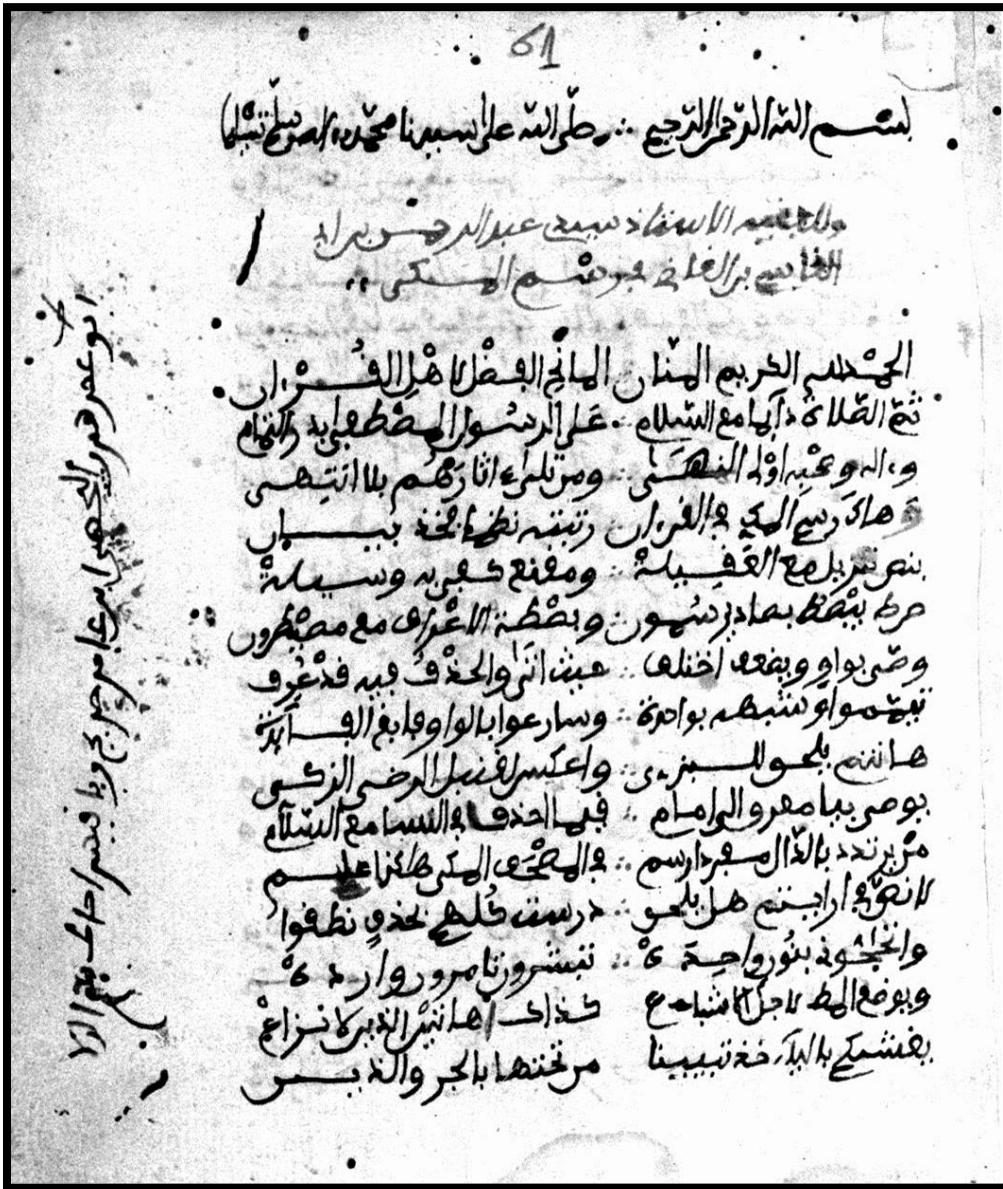 61
بسم الله الرحمن الرحيم ∴ وصلى الله على سيدنا محمد وءاله وصحبه وسلم تسليما
وللفقيه الاستاذ سيدي عبد الرحمن بن ابي
القاسم بن القاضي في رسم المكي
الحمد لله الكريم المنان المانح الفضل لاهل القرءان
ثم الصلاة دايما مع السلام ∴ على الرسول المصطفى والتمام
وءاله وصحبه اولي النهى ∴ ومن تلى ءاثارهم بلا انتهى
هاك رسم المكي في القرءان رتبته نظما فخذ بيان
بنص تنزيل مع العقيلة ∴ ومقنع كفى به وسيلة
صرط يبصط بصاد يرسمون ∴ وبصطة الاعراف مع مصيطرون
وصى بواو ويضعف اختلف حيث اتى والحذف فيه قد عرف
تيمموا وشبهه بواحدة ∴ وسارعوا بالواو فابغ الفايدة
هانتم بالحق للبزي ∴ واعكس لقنبل الرضى الزكي
يوصى بيا معرو الى امام ∴ فيما احذف في النسا مع السلام
من يرتدد بالدال مفردا رسم ∴ في المصحف المكي
لا تحق في ارايتم هل يلحق ∴ درست قل بحذف نطقوا
واتحجوني بنون واحدة ∴ تبشرون تامرون واردة
ويوضع المط لاجل الاشباع كذاك هاتين الذين لا نزاع
يغشيكم باليا خذ تبيينا من تحتها بالجر والذين
ابو عمر هو البحصي ابن عامر صريح وباقيهم احاط به الولا